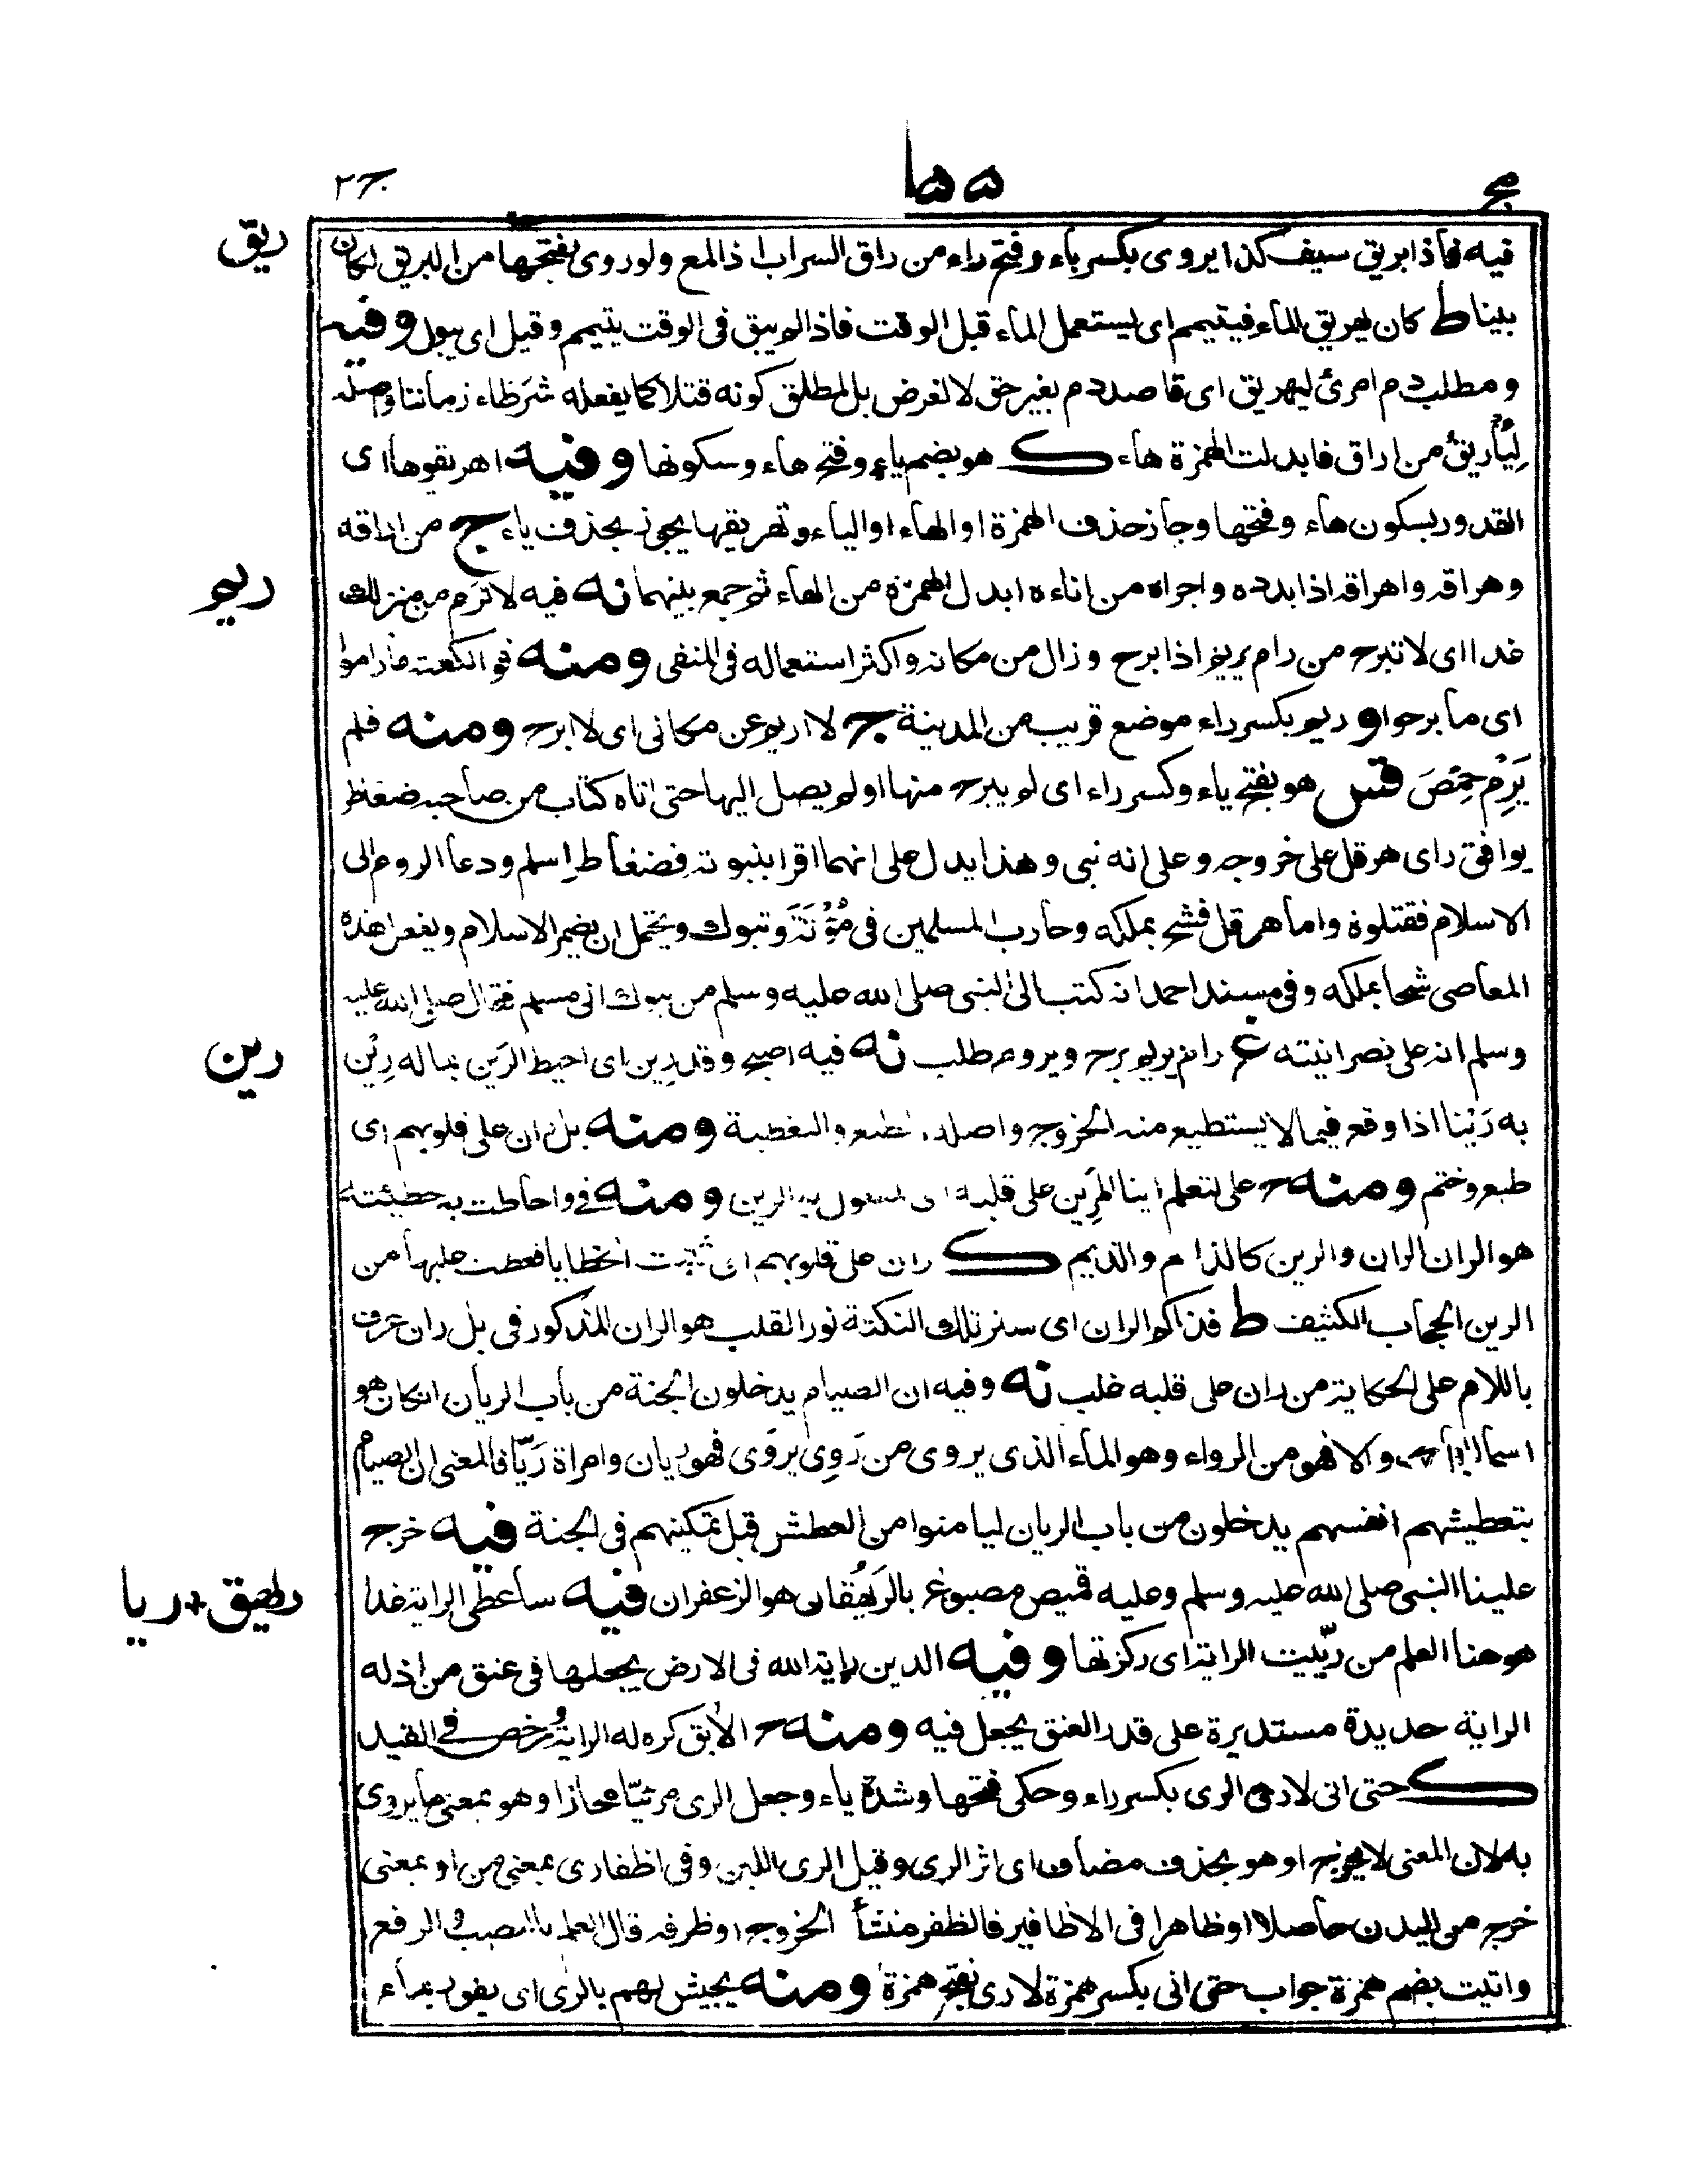 مج ٥٥ ج٢
ريق
فيه فاذا بريق سيف كذا يروى بكسر باء وفتح راء من راق السراب اذا لمع ولو روى بفتحها من البريق لكان
بينا ط كان يهريق الماء فيتيمم اى يستعمل الماء قبل الوقت فاذا لم يبق فى الوقت يتيمم وقيل اى يبول وفيه
ومطلب دم امرئ ليهريق اى قاصد دم بغير حق لا لغرض بل لمطلق كونه قتلا كما يفعله شر ظاء زماننا واصله
ليأريق من اراق فابدلت الهمزة هاء ك هو بضم ياء وفتح هاء وسكونها وفيه اهريقوها اى
القدور بسكون هاء وفتحها وجاز حذف الهمزة او الهاء او الياء وتهريقها يجوز بحذف ياء ج من اراقه
ريم
وهراقه واهراقه اذا بدده واجراه من اناءه ابدل الهمزة من الهاء ثم جمع بينهما نه فيه لا ترم من منزلك
غدا اى لا تبرح من رام يريم اذا برح وزال من مكانه واكثر استعماله فى المنفى ومنه فو الكعبة ما راموا
اى ما برحوا وريم بكسر راء موضع قريب من المدينة ج لا اريم عن مكانى اى لا ابرح ومنه فلم
يَرِمْ حِمْصَ قس هو بفتح ياء وكسر راء اى لم يبرح منها او لم يصل اليها حتى اتاه كتاب من صاحبه ضغاطر
يوافق راى هرقل على خروجه وعلى انه نبى وهذا يدل على انهما اقرا بنبوته فضغاطر اسلم ودعا الروم الى
الاسلام فقتلوة واما هرقل فشح بملكه وحارب المسلمين فى مُؤْتَةَ وتبوك ويحتمل ان يضمر الاسلام ويفعل هذه
المعاصى شحا بملكه وفى مسند احمد انه كتب الى النبى صلى الله عليه وسلم من تبوك انى مسلم فقال صلى الله عليه
رين
وسلم انه على نصرانيته غ رام يريم برح ويروم طلب نه فيه اصبح وقد رين اى احيط الرين بماله رِيْنَ
به رَيْنا اذا وقع فيما لا يستطيع منه الخروج واصله الطبع والتغطية ومنه بل ران على قلوبهم اى
طبع وختم ومنه ح على لتعلم اينا المرين على قلبه اى المفعول به الرين ومنه فى واحاطت به خطيئته
هو الران الران والرين كالذام والذيم ك ران على قلوبهم اى ثبتت الخطايا فغطت عليها من
الرين الحجاب الكثيف ط فذاكم الران اى ستر تلك النكتة نور القلب هو الران المذكور فى بل ران عرف
باللام على الحكاية من ران على قلبه غلب نه وفيه ان الصيام يدخلون الجنة من باب الريان ان كان هو
اسما للباب والا فهو من الرواء وهو الماء الذى يروى من رَوِى يروَى فهو ريان وامراة رَيّا فالمعنى ان الصيام
بتعطيشهم انفسهم يدخلون من باب الريان ليامنوا من العطش قبل تمكينهم فى الجنة فيه خرج
ريهق + ريا
علينا النبى صلى الله عليه وسلم وعليه قميص مصبوغ بالرَيْهُقان هو الزعفران فيه ساعطى الراية غدا
هو هنا العلم من ريّيت الراية اى ركزتها وفيه الدين راية الله فى الارض يجعلها فى عنق من اذله
الراية حديدة مستديرة على قدر العنق يجعل فيه ومنه ح الآبق كره له الراية ورخص فى القيد
ك حتى انى لارى الرى بكسر راء وحكى فتحها وشدة ياء وجعل الرى مرئيّا مجازا وهو بمعنى ما يروى
به لان المعنى لا يخرج او هو بحذف مضاف اى اثر الرى وقيل الرى اللبن وفى اظفارى بمعنى من او بمعنى
خرج من البدن حاصلا او ظاهرا فى الاظافير فالظفر منشأ الخروج او ظرفه قال العلم بالنصب والرفع
واتيت بضم همزة جواب حتى انى بكسر همزة لارى بفتح همزة ومنه يجيش لهم بالرى اى يفور بماء